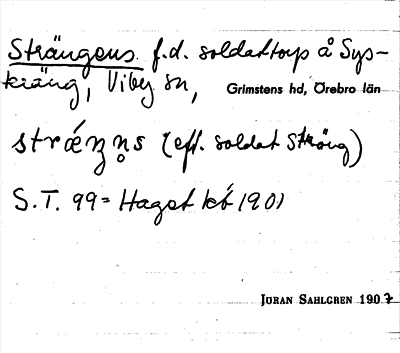 Strängens f.d. soldattorp å Sys-
kiäng, Viby sn, Grimstens hd, Örebro län
stræŋ̥ns (eft. soldat Sträng)
S.T. 99 = Haget kb 1901
JÖRAN SAHLGREN 1907